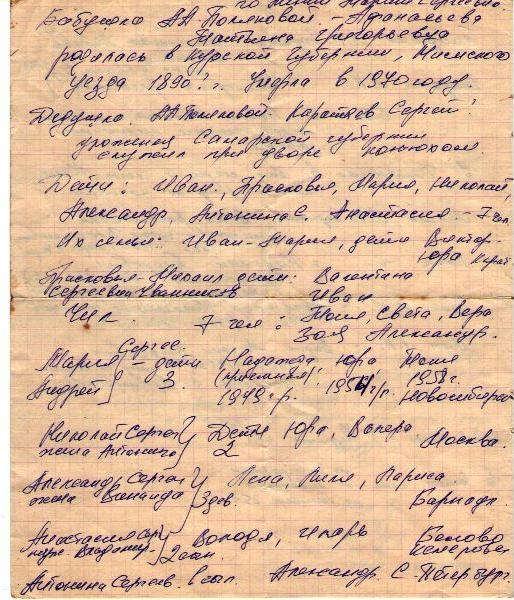 по линии Марии Сергеевны
Бабушка АА Поляковой. - Афанасьева
Татьяна Григорьевна
родилась в Курской губернии,
уезда 1890 г. Умерла в 1970 году.
Дедушка. АА Поляковой. Каратаев Сергей
уроженец Самарской губернии
служил при дворе конюхом.
Дети: Иван, Прасковия, Мария, Николай,
Александр, Антонина С. Анастасия - 7 чел
Их семьи: Иван - Мария, дети Виктор-
Юра
Прасковия - Михаил дети: Валентина
Сергеевна Иван
7 чел: Толя, Света, Вера
Зоя Александр.
Сергее.
Мария - дети Надежда Юра Толя
Андрей 3. (приемная) 195 г/р. 195 г.
1949 г.р. Новосибирск
Николай Серге Дети Юра, Валера
жена Антонина 2 Москва.
Александр Серге Лена, Лиля, Лариса.
жена 3 дев. Барнаул.
Анастасия Сер Володя, Игорь Белово
муж Владимир 2 сын. Кемерово
Антонина Сергеев. 1 сын. Александр С-Петербург.